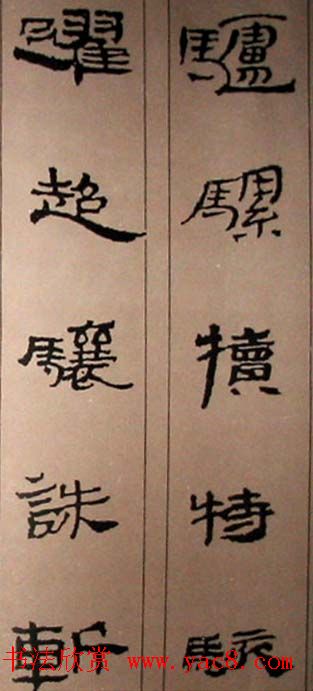 驢騾犢特駭
躍超驤誅斬
书法欣赏 www.yac8.com